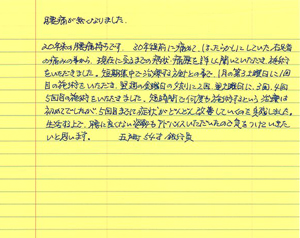 腰痛が無くなりました。
20年来の腰痛持ちです。30年前に痛めて、ほったらかしにしていた右足首
の痛みの事から、現在に至るまでの病状・病歴を詳しく聞いていただき、施術
をいただきました。短期集中で治療する方針との事で、1月の第3土曜日に1回
目の施術をいただき、翌週の金曜日の夕刻に2回、翌土曜日に、3回、4回
5回目の施術をいただきました。短時間で何度も施術するという治療は
初めてでしたが、5回目までに症状がどんどん改善していくのを実感しました。
生活する上で、腰に良くない姿勢もアドバイスいただいたので気をつけていきた
いと思います。 54才 銀行員